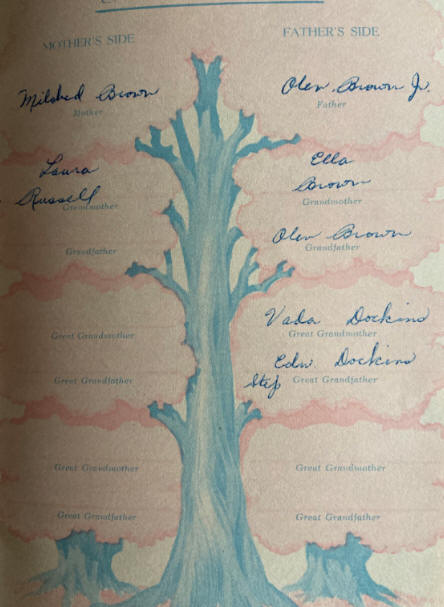 MOTHER'S SIDE
FATHER'S SIDE
Mildred Brown
Mother
Olen Brown Jr.
Father
Laura
Russell
Grandmother
Ella
Brown
Grandmother
Grandfather
Olen Brown
Grandfather
Great Grandmother
Vada Dockins
Great Grandmother
Great Grandfather
Edw. Dockins
Step Great Grandfather
Great Grandmother
Great Grandmother
Great Grandfather
Great Grandfather